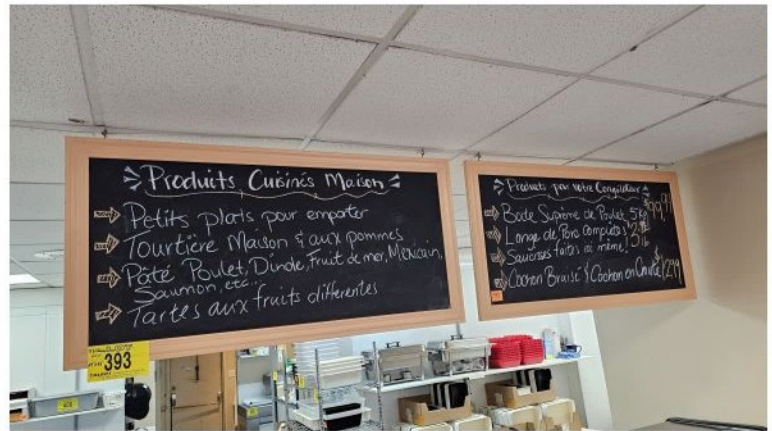 Produits Cuisinés Maison
Petits plats pour emporter
Tourtière Maison & aux pommes
Pâté Poulet, Dinde, Fruit de mer, Mexicain,
Saumon, etc.
Tartes aux fruits différentes
393
Produits pour votre Congélateur
Boite Suprême de Poulet 5kg
Longe de Porc complète
Saucisses faites ici même!
Cochon Braisé & Cochon en